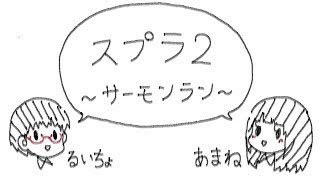 スプラ2
～サーモンラン～
るいちょ
あまね